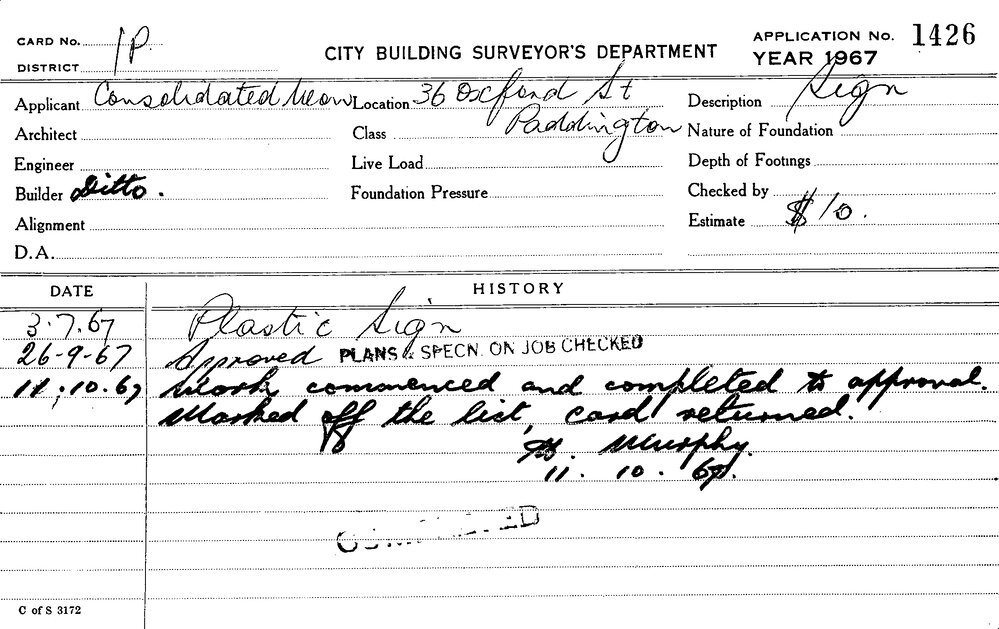 CARD No. 1P
DISTRICT
CITY BUILDING SURVEYOR'S DEPARTMENT
APPLICATION No. 1426
YEAR 1967
Applicant Consolidated Neon Location 36 Oxford St Description Sign
Architect Class Paddington Nature of Foundation
Engineer Live Load Depth of Footings
Builder Ditto. Foundation Pressure Checked by
Alignment Estimate $10.
D.A.
DATE HISTORY
3.7.67 Plastic Sign
26-9-67 Approved PLANS & SPECN. ON JOB CHECKED
11.10.67 Work commenced and completed to approval.
Marked off the list, card returned.
Murphy.
11. 10. 67.
COMPLETED
C of S 3172